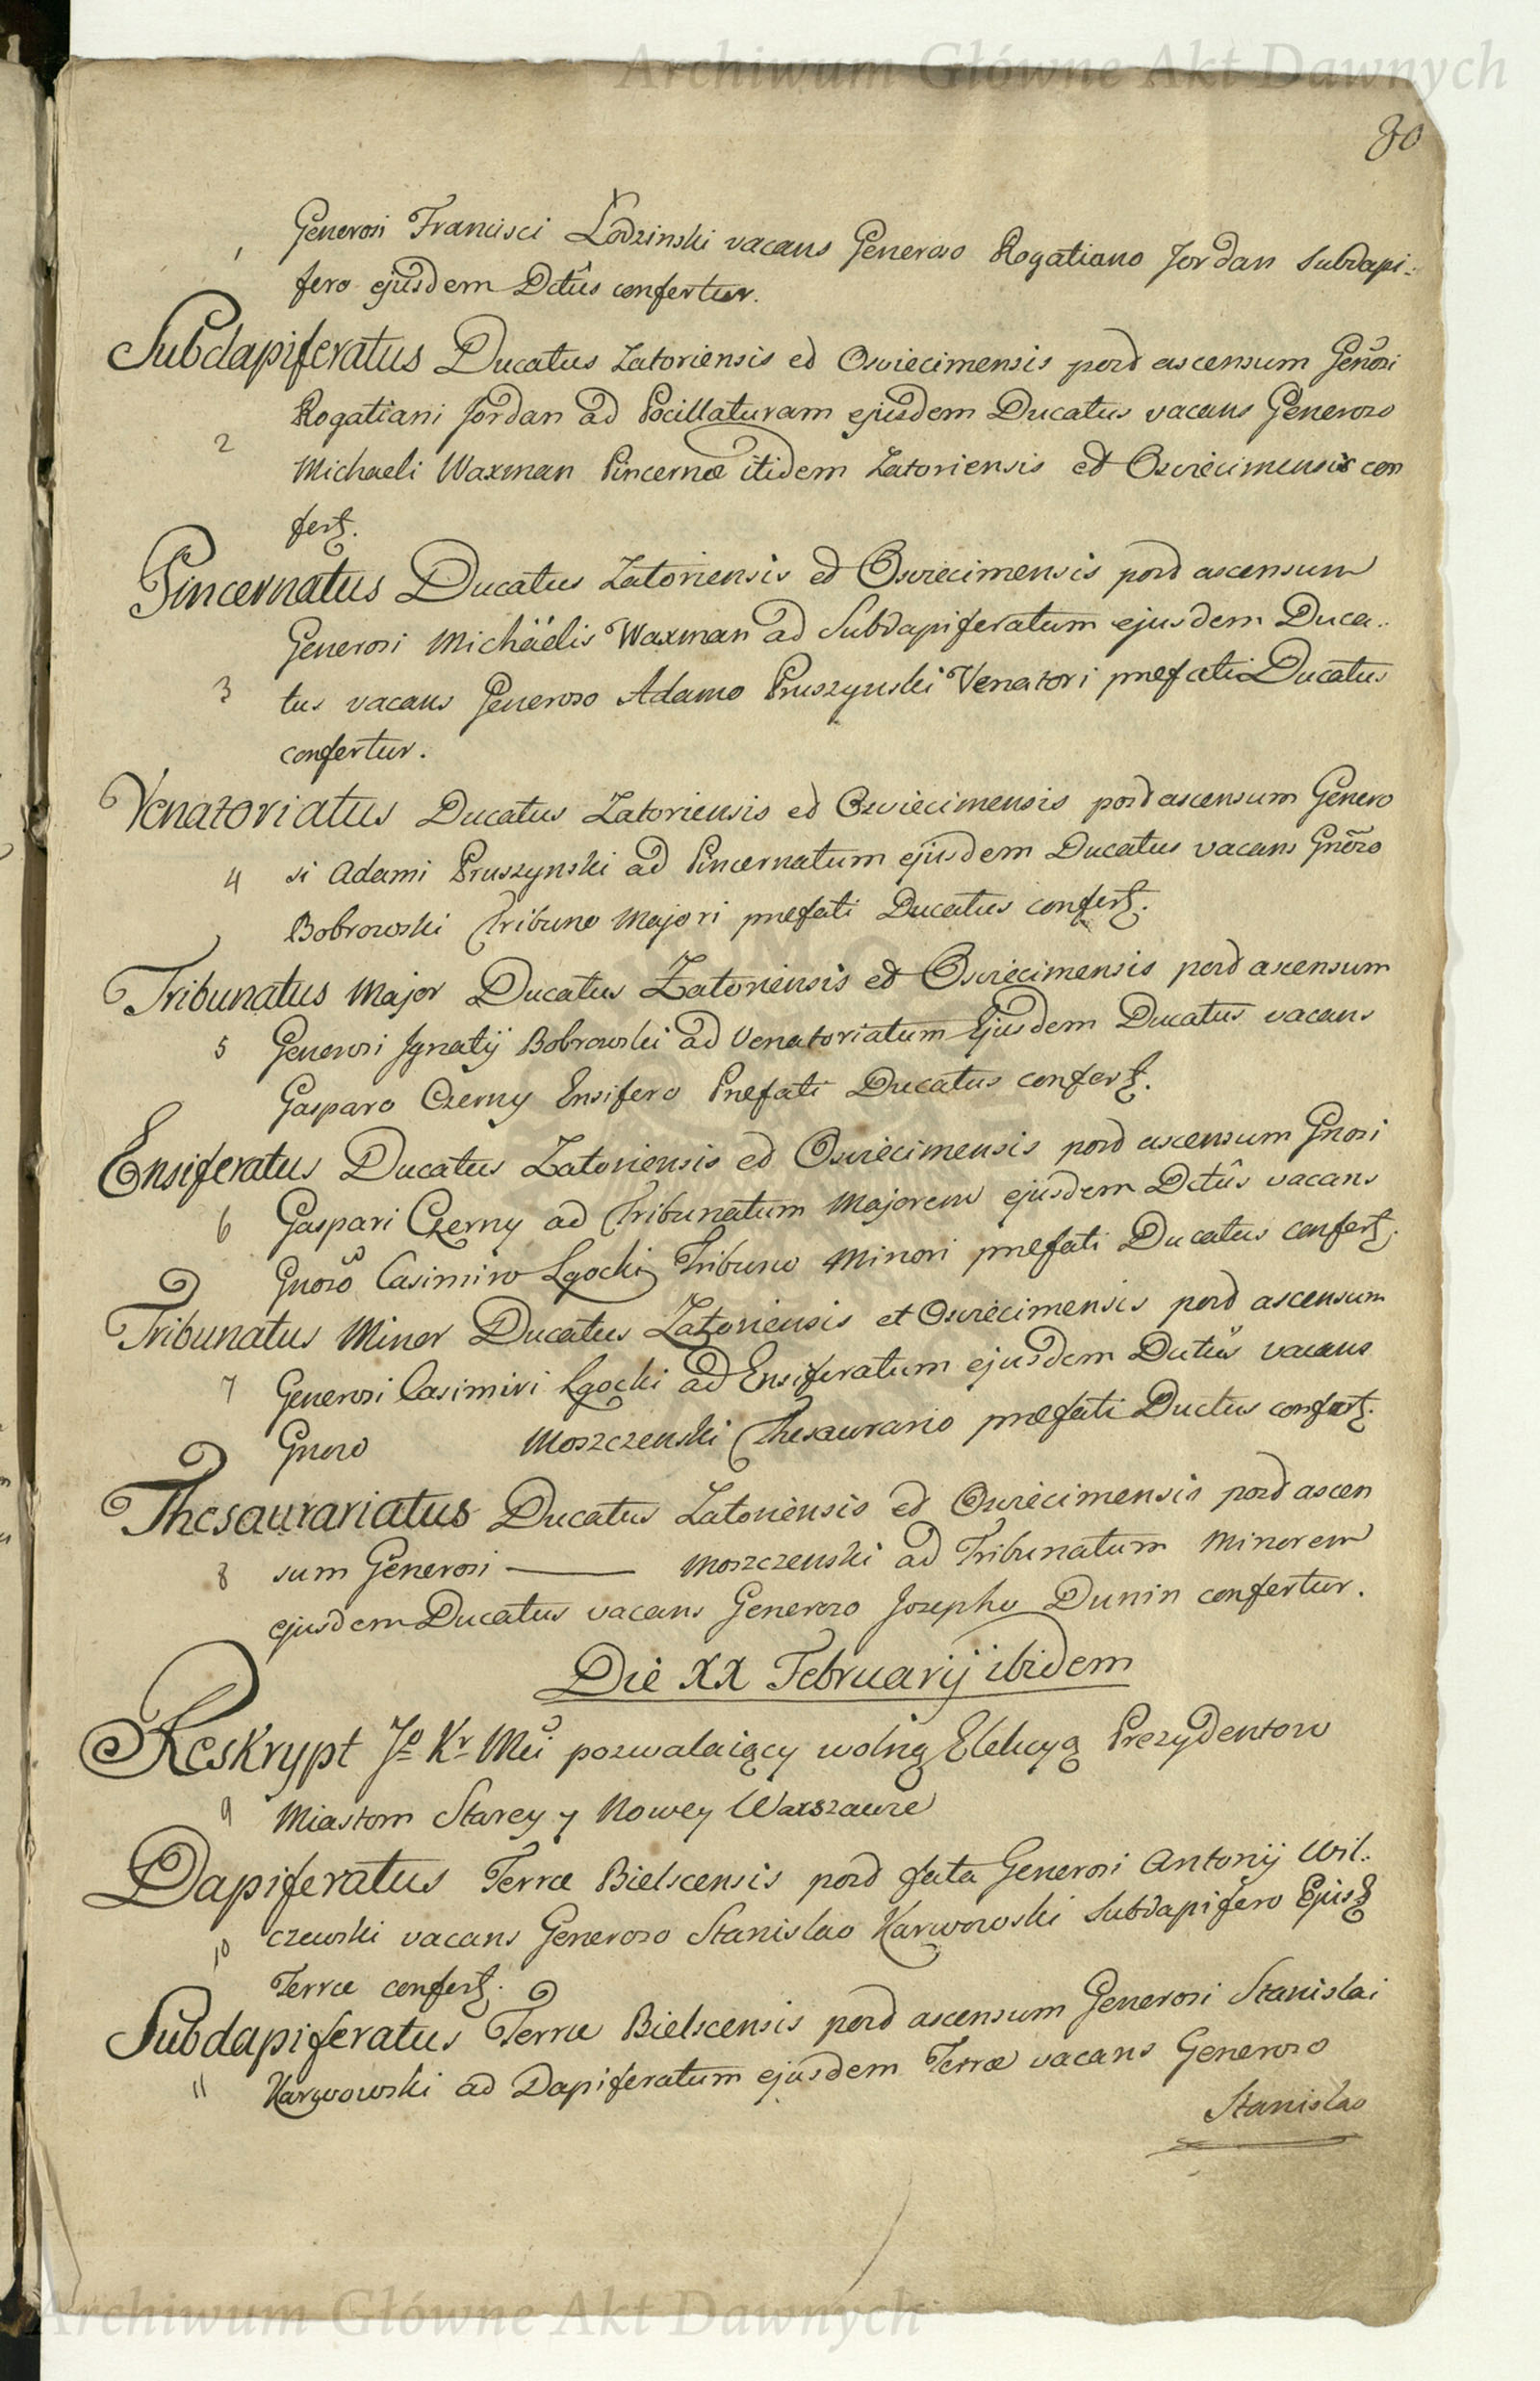 Archiwum Główne Akt Dawnych
80
1 Generosi Francisci Łodzinski vacans Generoso Rogatiano Jordan Subdapi:
fero ejusdem Dctûs confertur.
Subdapiferatus Ducatus Zatoriensis et Osviecimensis post ascensum Genõsi
Rogatiani Jordan ad Pocillaturam ejusdem Ducatus vacans Generoso
2 Michaeli Waxman Pincernæ itidem Zatoriensis et Osviecimensis con
fert.
Pincernatus Ducatus Zatoriensis et Osviecimensis post ascensum
Generosi Michäelis Waxman ad Subdapiferatum ejusdem Duca:
3 tus vacans Generoso Adamo Pruszynski Venatori præfati Ducatus
confertur.
Venatoriatus Ducatus Zatoriensis et Osviecimensis post ascensum Genero
4 si Adami Pruszynski ad Pincernatum ejusdem Ducatus vacans Gnõso
Bobrowski Tribuno Majori præfati Ducatus confert.
Tribunatus Major Ducatus Zatoriensis et Osviecimensis post ascensum
5 Generosi Jgnatij Bobrowski ad Venatoriatum Ejusdem Ducatus vacans
Gasparo Czerny Ensifero Præfati Ducatus confert.
Ensiferatus Ducatus Zatoriensis et Osviecimensis post ascensum Gnosi
6 Gaspari Czerny ad Tribunatum Majorem ejusdem Dctûs vacans
Gnoso Casimiro Lgocki Tribuno Minori præfati Ducatus confert.
Tribunatus Minor Ducatus Zatoriensis et Osviecimensis post ascensum
7 Generosi Casimiri Lgocki ad Ensiferatum ejusdem Dctûs vacans
Gnoso Moszczenski Thesaurario præfati Ductus confert.
Thesaurariatus Ducatus Zatoriensis et Osviecimensis post ascen
8 sum Generosi — Moszczenski ad Tribunatum Minorem
ejusdem Ducatus vacans Generoso Josepho Dunin confertur.
Die XX Februarij ibidem
Reskrypt Jo Kr Mci pozwalaiący wolną Elekcyą Prezydentow
9 Miastom Starey y Nowey Warszawie
Dapiferatus Terræ Bielscensis post fata Generosi Antonij Wil:
10 czewski vacans Generoso Stanislao Karwowski Subdapifero Ejusd
Terræ confert.
Subdapiferatus Terræ Bielscensis post ascensum Generosi Stanislai
11 Karwowski ad Dapiferatum ejusdem Terræ vacans Generoso
Stanislao
Archiwum Główne Akt Dawnych